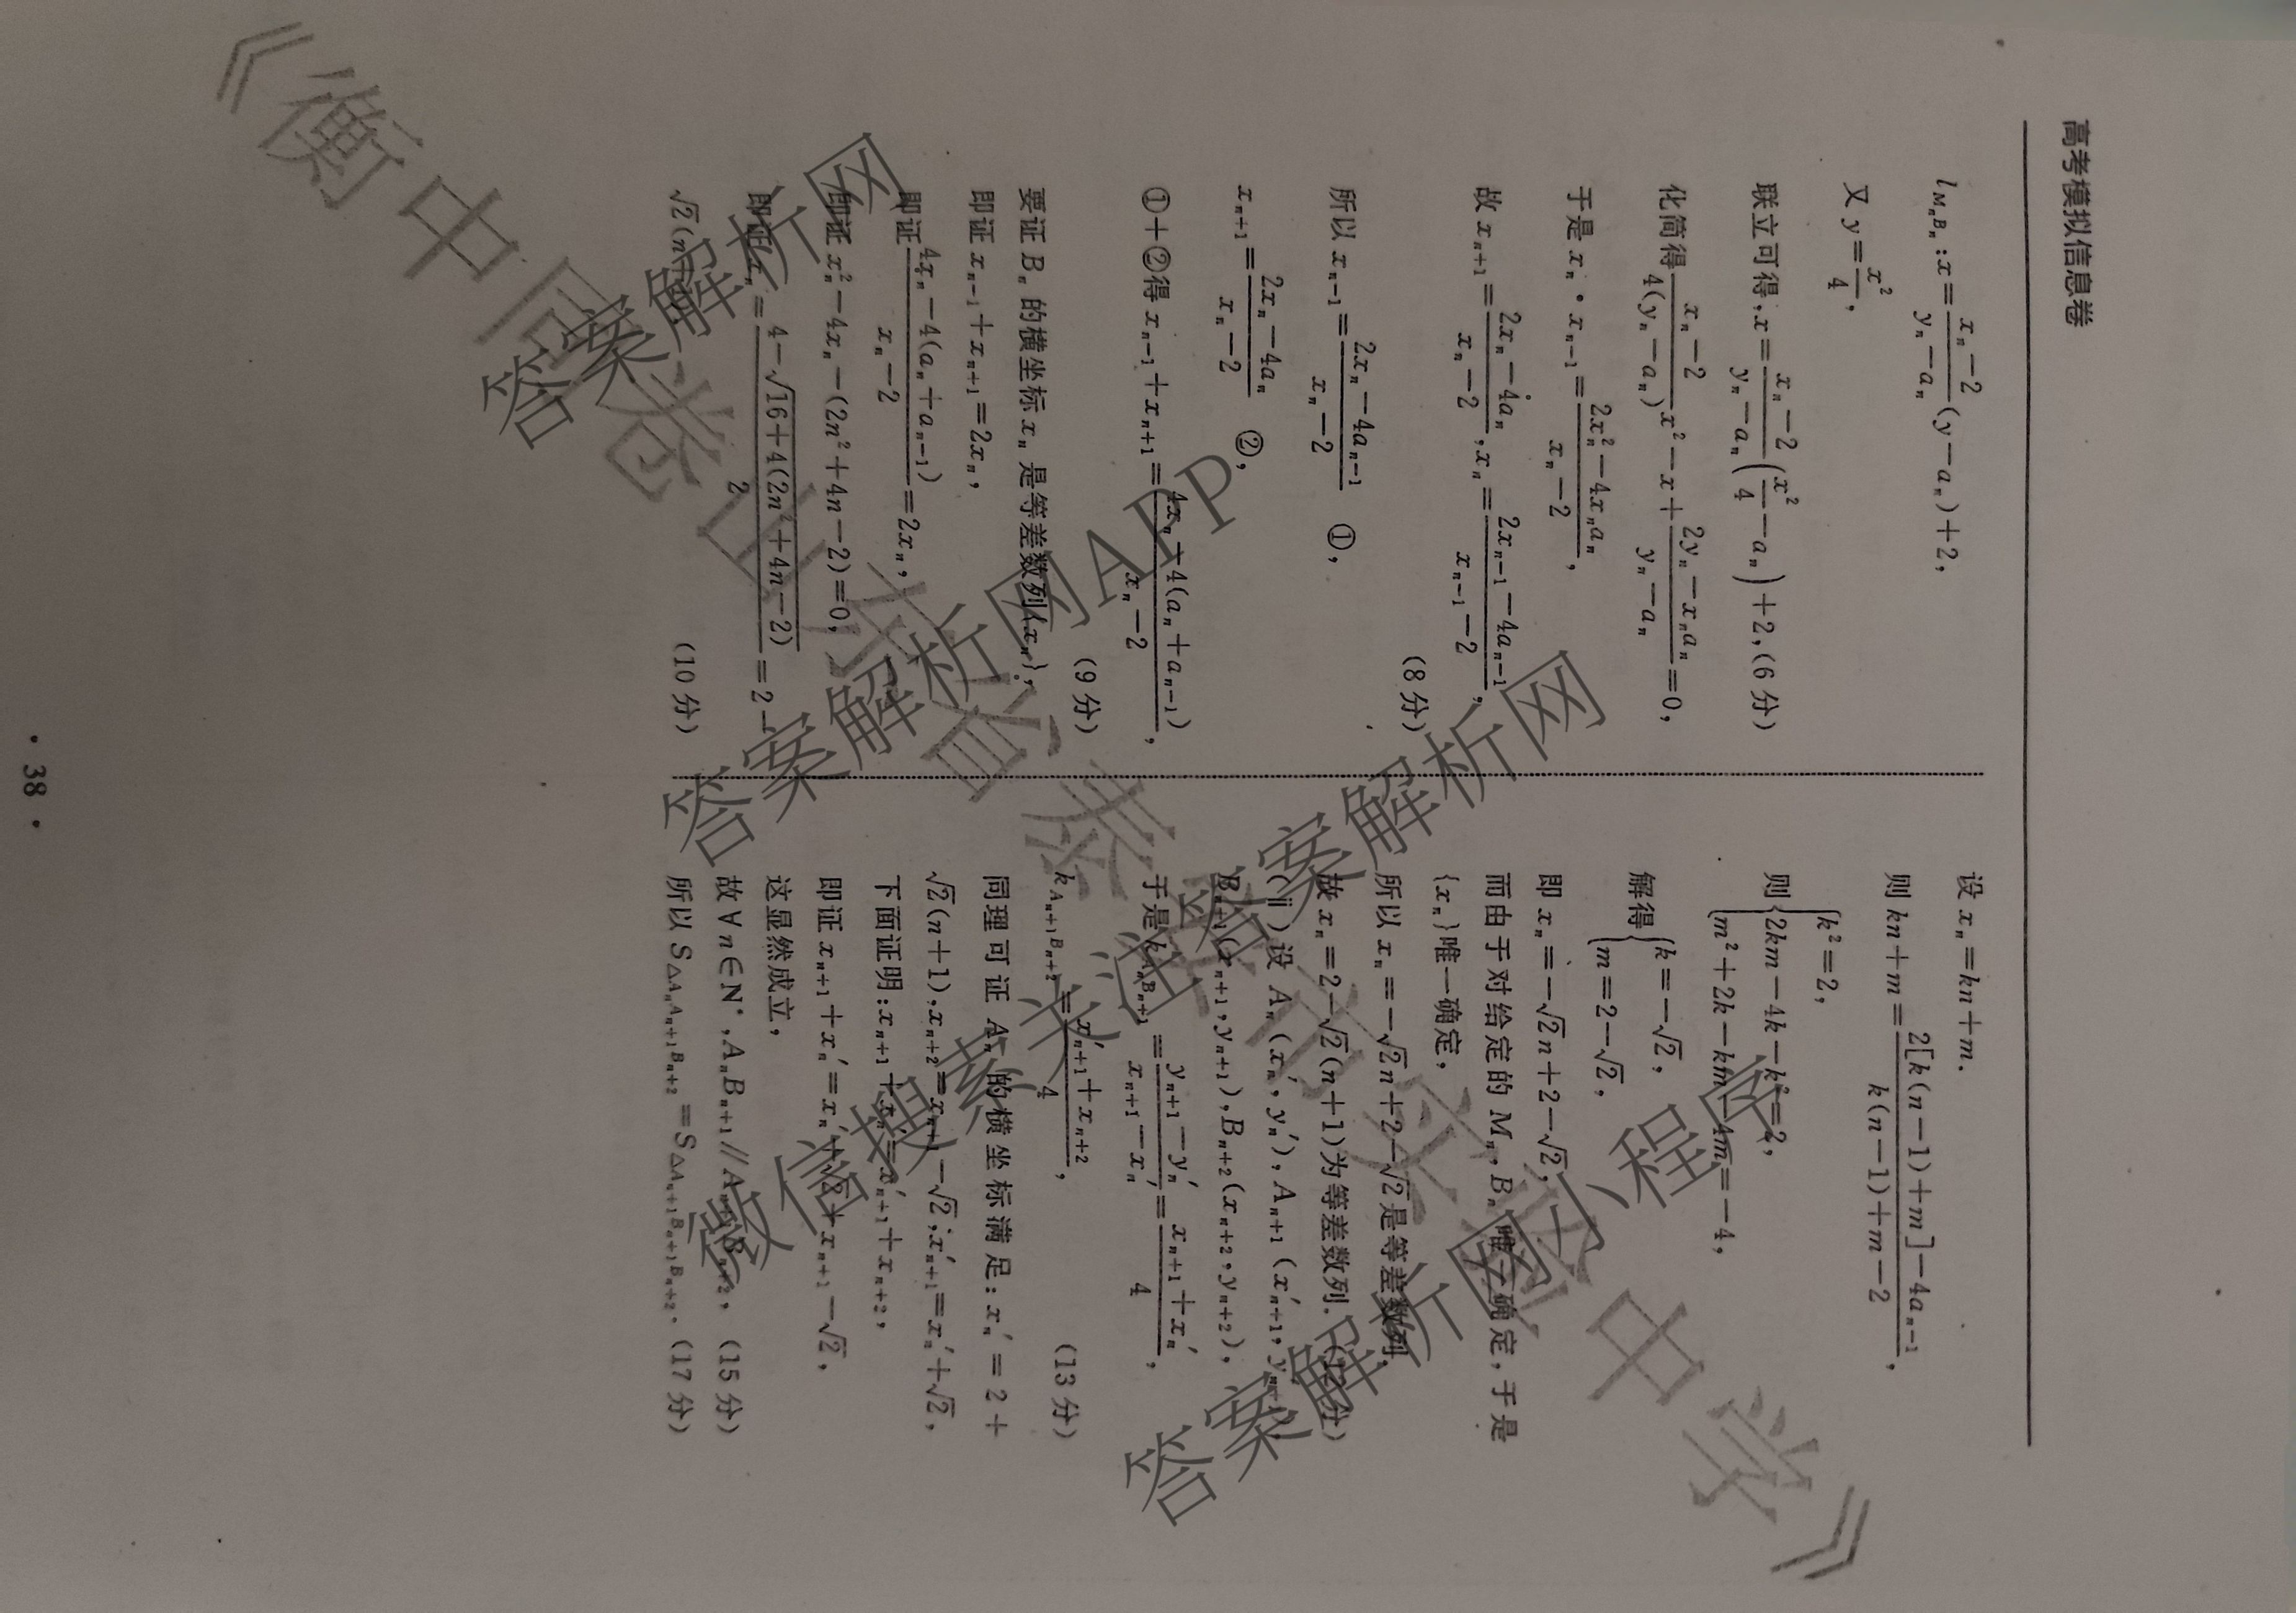 高考模拟信息卷
l_{M_nB_n}:x=\frac{x_n-2}{y_n-a_n}(y-a_n)+2,
又 y=\frac{x^2}{4},
联立可得,x=\frac{x_n-2}{y_n-a_n}(\frac{x^2}{4}-a_n)+2,(6分)
化简得\frac{x_n-2}{4(y_n-a_n)}x^2-x+\frac{2y_n-x_na_n}{y_n-a_n}=0,
于是 x_n·x_{n-1}=\frac{2x_n^2-4x_na_n}{x_n-2},
故 x_{n+1}=\frac{2x_n-4a_n}{x_n-2},x_n=\frac{2x_{n-1}-4a_{n-1}}{x_{n-1}-2},
(8分)
所以 x_{n-1}=\frac{2x_n-4a_{n-1}}{x_n-2} ①,
x_{n+1}=\frac{2x_n-4a_n}{x_n-2} ②,
①+②得 x_{n-1}+x_{n+1}=\frac{4x_n-4(a_n+a_{n-1})}{x_n-2},
(9分)
要证 B_n 的横坐标 x_n 是等差数列{x_n},
即证 x_{n-1}+x_{n+1}=2x_n,
即证\frac{4x_n-4(a_n+a_{n-1})}{x_n-2}=2x_n,
即证 x_n^2-4x_n-(2n^2+4n-2)=0,
即证 x_n=\frac{4-\sqrt{16+4(2n^2+4n-2)}}{2}=2-
√2(n+1),
(10分)
设 x_n=kn+m.
则 kn+m=\frac{2[k(n-1)+m]-4a_{n-1}}{k(n-1)+m-2},
则{k^2=2,
2km-4k-k^2=2,
m^2+2k-km-4m=-4,
解得{k=-√2,
m=2-√2,
即 x_n=-√2n+2-√2,
而由于对给定的 M_n,B_n 唯一确定,于是
{x_n}唯一确定,
所以 x_n=-√2n+2-√2是等差数列,
故 x_n=2-√2(n+1)为等差数列. (12分)
(ⅱ)设 A_n(x_n',y_n'),A_{n+1}(x_{n+1}',y_{n+1}'),
B_{n+1}(x_{n+1},y_{n+1}),B_{n+2}(x_{n+2},y_{n+2}),
于是 k_{A_nB_{n+1}}=\frac{y_{n+1}-y_n'}{x_{n+1}-x_n'}=\frac{x_{n+1}+x_n'}{4},
k_{A_{n+1}B_{n+2}}=\frac{x_{n+1}'+x_{n+2}}{4},
(13分)
同理可证 A_n 的横坐标满足:x_n'=2+
√2(n+1),x_{n+2}=x_{n+1}-√2;x_{n+1}'=x_n'+√2,
下面证明:x_{n+1}+x_n'=x_{n+1}'+x_{n+2},
即证 x_{n+1}+x_n'=x_n'+√2+x_{n+1}-√2,
这显然成立,
故∀n∈N*,A_nB_{n+1}//A_{n+1}B_{n+2}, (15分)
所以 S_{△A_nA_{n+1}B_{n+2}}=S_{△A_{n+1}B_{n+1}B_{n+2}}. (17分)
· 38 ·
答案解析网
答案解析网APP
答案解析网
答案解析网